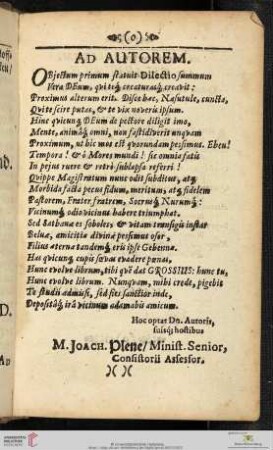 (o)
AD AUTOREM.
OBjectum primum statuit Dilectio summum
Vera DEum, qui teq; creaturasq; creavit:
Proximus alterum erit. Disce hac, Nasutule, cuncta,
Qui te scire putas, & te vix noveris ipsum.
Hinc qvicunq; DEum de pectore diligit imo,
Mente, animâq; omni, non fastidiverit unqvam
Proximum, ut hic mos est qvorundam pessimus. Eheu!
Tempora! & ô Mores mundi! sic omnia fatis
In pejus ruere & retrò sublapsa referri!
Quippe Magistratum nunc odit subditus, atq;
Morbida facta pecus fidum, meritum, atq; fidelem
Pastorem, Frater fratrem, Socrusq; Nurumq;:
Vicinumq; odio vicinus habere triumphat.
Sed Sathanae es soboles, & vitam transigis instar
Beluae, amicitiae divinae pessimus osor,
Filius aeterna tandemq; eris ipse Gehennae.
Has qvicunq; cupis saevas evadere poenas,
Hunc evolve librum, tibi qvē dat GROSSIUS: hunc tu,
Hunc evolve librum. Nunqvam, mihi crede, pigebit
Te studii admissi, sed sis sanctior inde,
Depositâq; irâ vicinum adamabis amicum.
Hoc optat Dn. Autoris,
suisq; hostibus
M. JOACH. Plene/ Minist. Senior,
Consistorii Assessor.